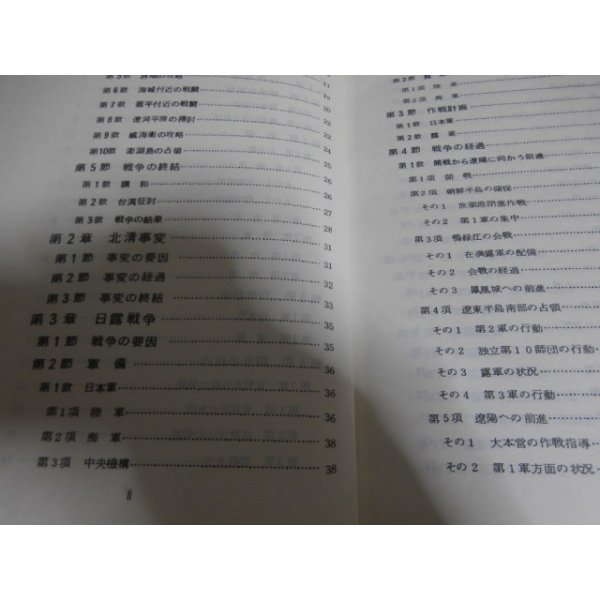 第6款 海城付近の戦闘 19
第7款 蓋平付近の戦闘 20
第8款 遼河平原の掃討 22
第9款 威海衛の攻略 22
第10款 澎湖島の占領 24
第5節 戦争の終結 25
第1款 講和 26
第2款 台湾征討 26
第3款 戦争の結果 28
第2章 北清事変 31
第1節 事変の要因 31
第2節 事変の経過 31
第3節 事変の終結 33
第3章 日露戦争 35
第1節 戦争の要因 35
第2節 軍備 36
第1款 日本軍 36
第1項 陸軍 36
第2項 海軍 38
第3項 中央機構 38
第1項 陸軍
第2項 海軍
第3節 作戦計画
第1款 日本軍
第2款 露軍
第4節 戦争の経過
第1款 開戦から遼陽に向かう前進
第1項 開戦
第2項 朝鮮半島の確保
その1 旅順港閉塞作戦
その2 第1軍の集中
第3項 鴨緑江の会戦
その1 在満露軍の配備
その2 会戦の経過
その3 鳳凰城への前進
第4項 遼東半島南部の占領
その1 第2軍の行動
その2 独立第10師団の行動
その3 露軍の状況
その4 第3軍の行動
第5項 遼陽への前進
その1 大本営の作戦指導
その2 第1軍方面の状況